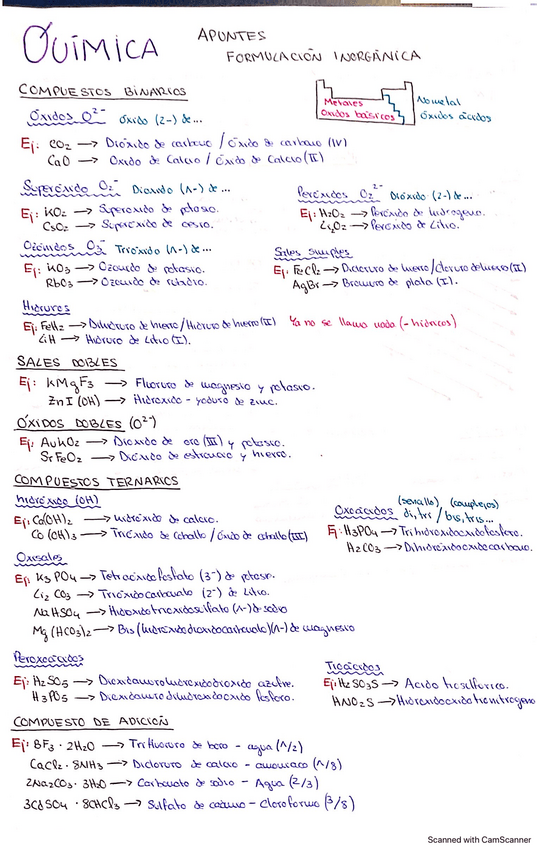 QUÍMICA
APUNTES
FORMULACIÓN INORGÁNICA
COMPUESTOS BINARIOS
Metales
Óxidos básicos
No metal
óxidos ácidos
Óxidos O²⁻ óxido (2-) de...
Ej: CO₂ → Dióxido de carbono / óxido de carbono (IV)
CaO → Óxido de Calcio / óxido de Calcio (II)
Superóxido O₂⁻ Dióxido (1-) de...
Ej: KO₂ → Superóxido de potasio.
CsO₂ → Superóxido de cesio.
Peróxidos O₂²⁻ Dióxido (2-) de...
Ej: H₂O₂ → Peróxido de hidrógeno.
Li₂O₂ → Peróxido de Litio.
Ozónidos O₃⁻ Trióxido (1-) de...
Ej: KO₃ → Ozónido de potasio.
RbO₃ → Ozónido de rubidio.
Sales simples
Ej: FeCl₂ → Dicloruro de hierro / cloruro de hierro (II)
AgBr → Bromuro de plata (I).
Hidruros
Ej: FeH₂ → Dihidruro de hierro / Hidruro de hierro (II) Ya no se llama nada (-hídricos)
LiH → Hidruro de Litio (I).
SALES DOBLES
Ej: KMgF₃ → Fluoruro de magnesio y potasio.
ZnI(OH) → Hidróxido - yoduro de zinc.
ÓXIDOS DOBLES (O²⁻)
Ej: AuKO₂ → Dióxido de oro (III) y potasio.
SrFeO₂ → Dióxido de estroncio y hierro.
COMPUESTOS TERNARIOS
hidróxido (OH)
Ej: Ca(OH)₂ → hidróxido de calcio.
Co(OH)₃ → Trióxido de Cobalto / Óxido de cobalto (III)
(sencillo) (complejos)
Oxoácidos di, tri / bis, tris...
Ej: H₃PO₄ → Trihidroxidooxidofosforo.
H₂CO₃ → Dihidroxidooxidocarbono.
Oxisales
Ej: K₃PO₄ → Tetraoxidofosfato (3-) de potasio.
Li₂CO₃ → Trioxidocarbonato (2-) de Litio.
NaHSO₄ → Hidroxidotrioxidosulfato (1-) de sodio
Mg(HCO₃)₂ → Bis (hidroxidodioxidocarbonato)(1-) de magnesio
Peroxoácidos
Ej: H₂SO₅ → azufre.
H₃PO₅ → fosforo.
Tioácidos
Ej: H₂SO₃S → Ácido tiosulfúrico.
HNO₂S →
COMPUESTO DE ADICIÓN
Ej: BF₃ · 2H₂O → Trifluoruro de boro - agua (1/2)
CaCl₂ · 8NH₃ → Dicloruro de calcio - amoniaco (1/8)
2Na₂CO₃ · 3H₂O → Carbonato de sodio - Agua (2/3)
3CdSO₄ · 8CHCl₃ → Sulfato de cadmio - Cloroformo (3/8)
Scanned with CamScanner